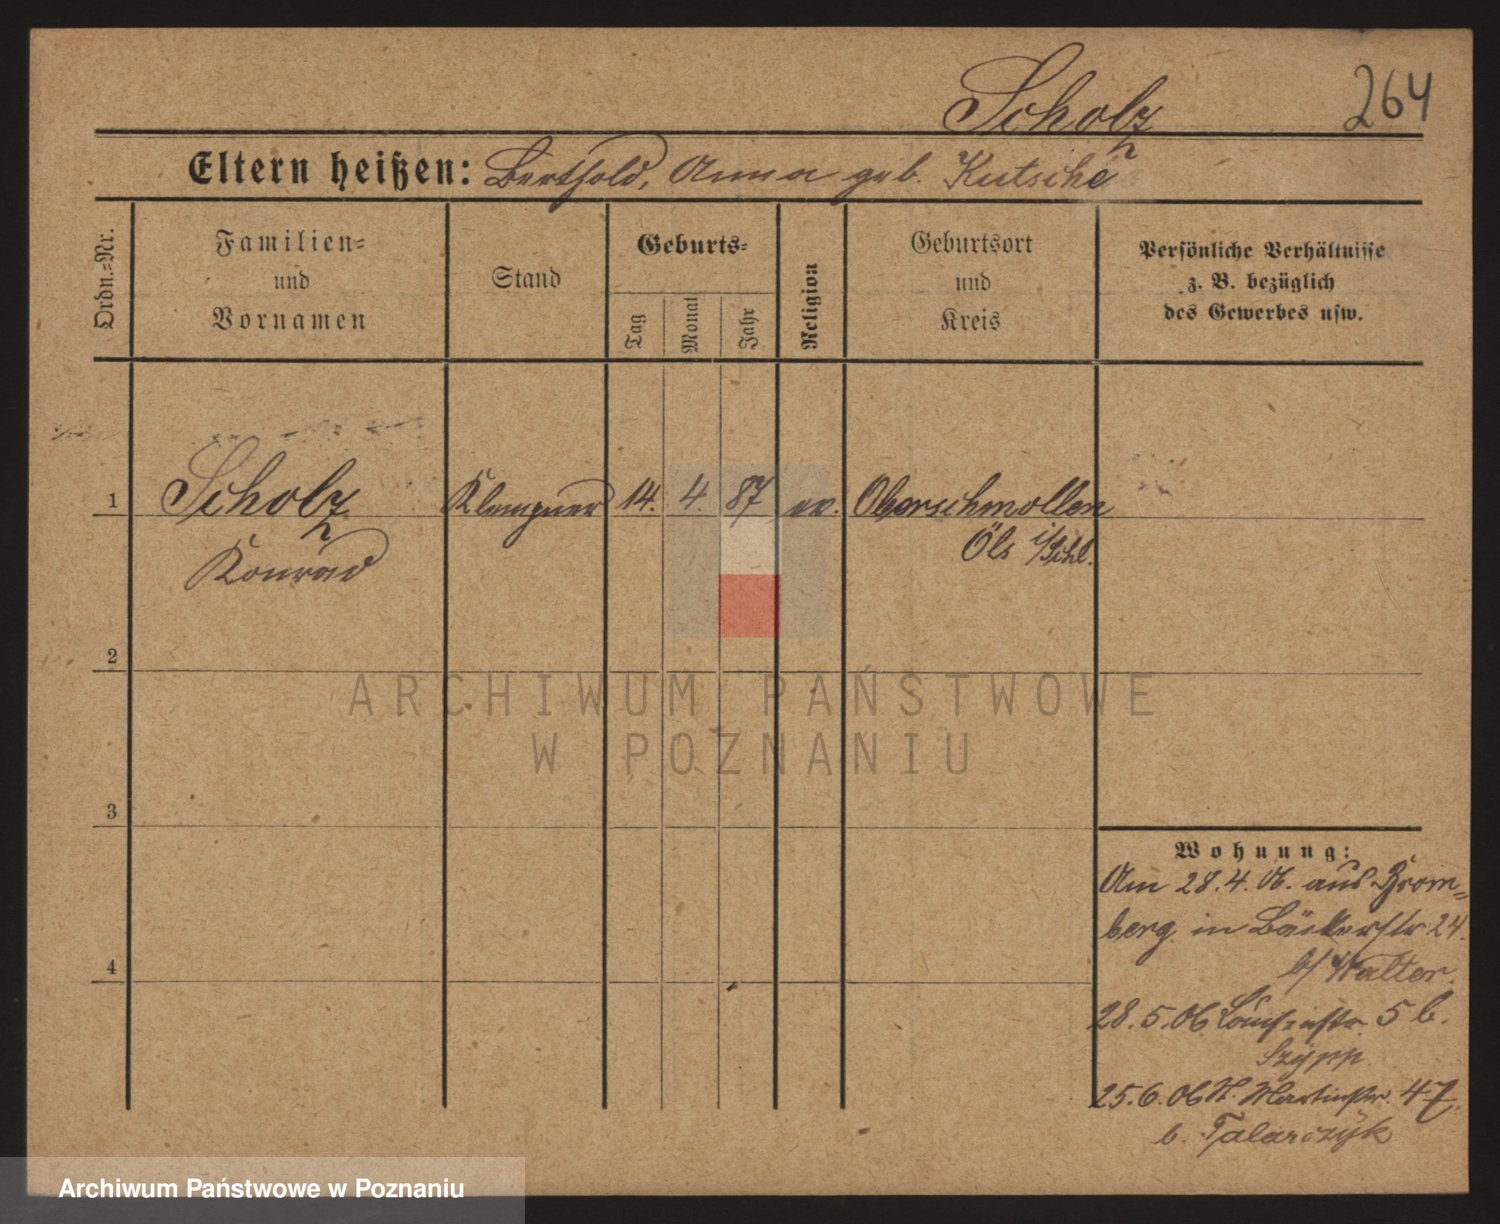 Scholz
264
Eltern heißen: Berthold, Anna geb. Kutsche
Ordn.=Nr.
Familien=
und
Vornamen
Stand
Geburts=
Tag
Monat
Jahr
Religion
Geburtsort
und
Kreis
Persönliche Verhältnisse
z. B. bezüglich
des Gewerbes usw.
1
Scholz
Konrad
Klempner
14.
4.
87
ev.
Oberschmollen
Öls i/Schl.
2
3
4
ARCHIWUM PAŃSTWOWE
W POZNANIU
Wohnung:
Am 28.4.06. aus Brom=
berg in Bäckerstr 24.
b/ Walter.
28.5.06 Louisenstr. 5 b.
Szypp
25.6.06 St. Martinstr. 47.
b. Talarczyk
Archiwum Państwowe w Poznaniu